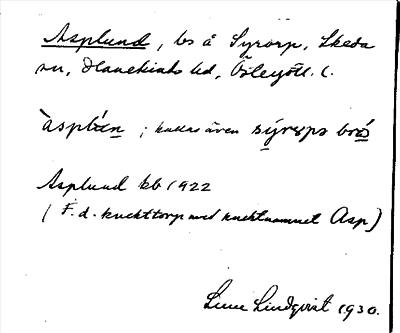 Asplund, ls å Syrorp, Skeda
sn, Hanekinds hd, Östergötl. l.
àsplɯn ; kallas även sýrɛps brɷ́
Asplund kb 1922
( F. d. knekttorp med knektnamnet Asp)
Lindqvist 1930.